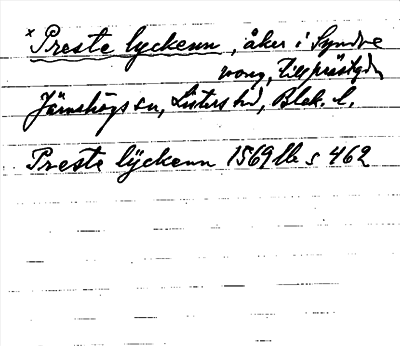 x Preste lyckenn, åker i Syndre
vong, till prästgdn
Jämshögs sn, Listers hd, Blek. l.
Preste lÿckenn 1569 lb s 462